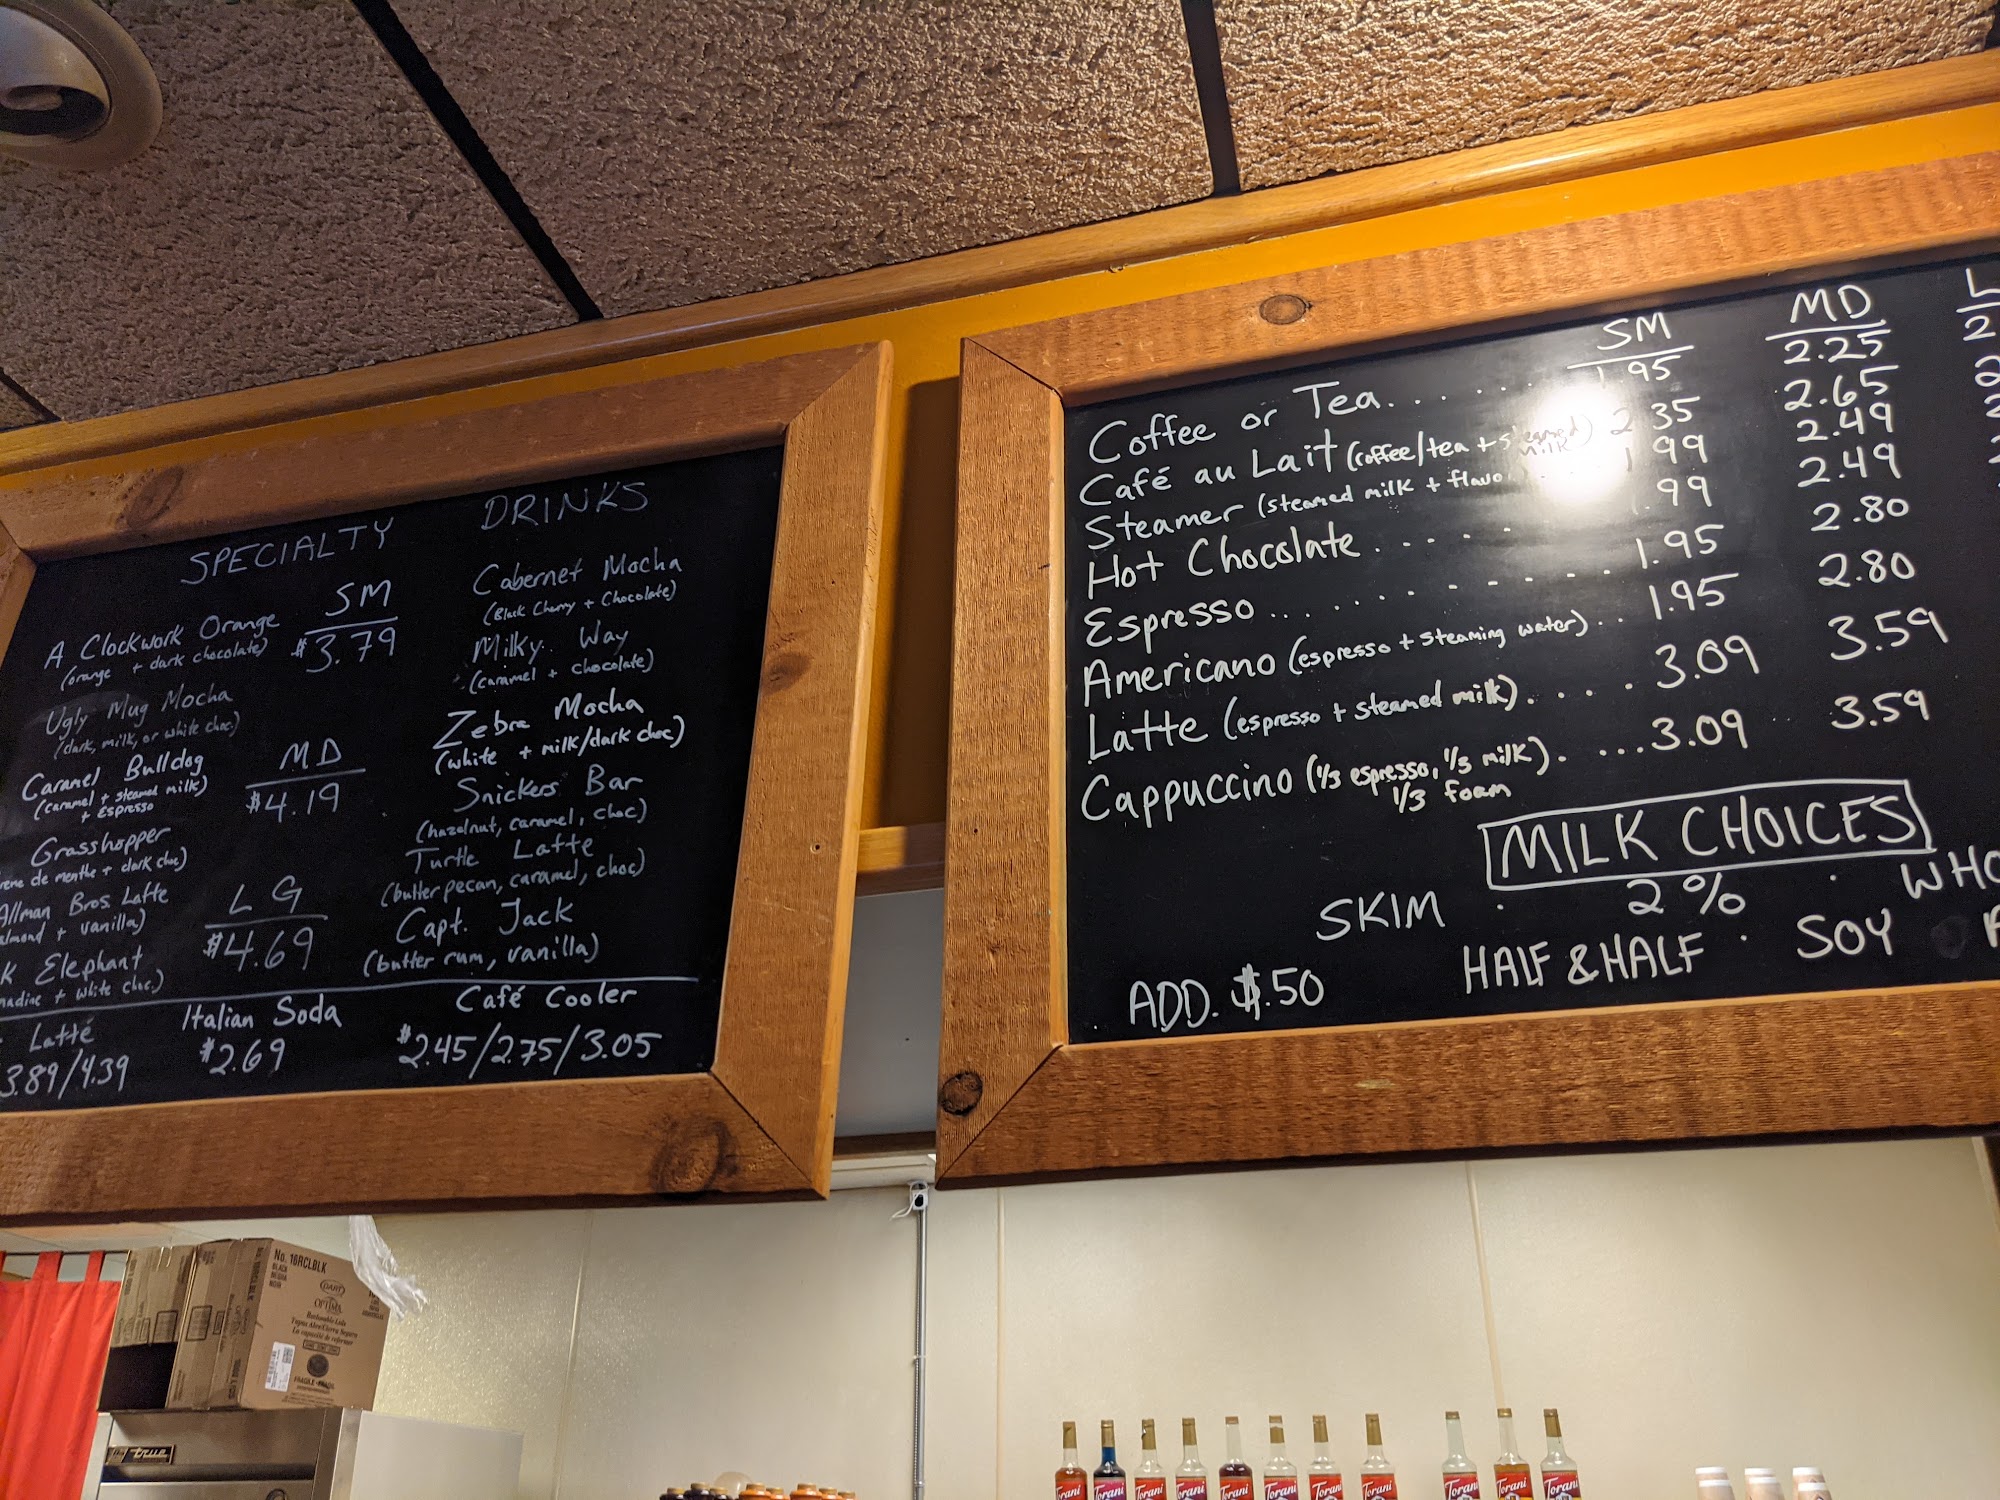 SPECIALTY DRINKS
A Clockwork Orange
(orange + dark chocolate)
Ugly Mug Mocha
(dark, milk, or white choc.)
Caramel Bulldog
(caramel + steamed milk)
+ Espresso
Grasshopper
de menthe + dark choc)
Allman Bros. Latte
+ vanilla)
Elephant
+ white choc.)
SM
$3.79
MD
$4.19
LG
$4.69
Cabernet Mocha
(Black Cherry + Chocolate)
Milky Way
(caramel + chocolate)
Zebra Mocha
(white + milk/dark choc)
Snickers Bar
(hazelnut, caramel, choc)
Turtle Latte
(butter pecan, caramel, choc)
Capt. Jack
(butter rum, vanilla)
Latté
3.89/4.39
Italian Soda
$2.69
Café Cooler
$2.45/2.75/3.05
SM MD L
Coffee or Tea.... 1.95 2.25
Café au Lait (coffee/tea + steamed milk) 2.35 2.65
Steamer (steamed milk + 1.99 2.49
Hot Chocolate..... 1.99 2.49
Espresso............ 1.95 2.80
Americano (espresso + steaming water).. 1.95 2.80
Latte (espresso + steamed milk)..... 3.09 3.59
Cappuccino (1/3 espresso, 1/3 milk). ...3.09 3.59
1/3 foam
MILK CHOICES
SKIM · 2% ·
ADD. $.50 HALF & HALF · SOY
No. 16RCLBLK
BLACK
NEGRA
NOIR
DART
OPTIMA
Reclosable Lids
FRAGILE
true
Torani
Torani
Torani
Torani
Torani
Torani
Torani
Torani
Torani
Torani
Torani